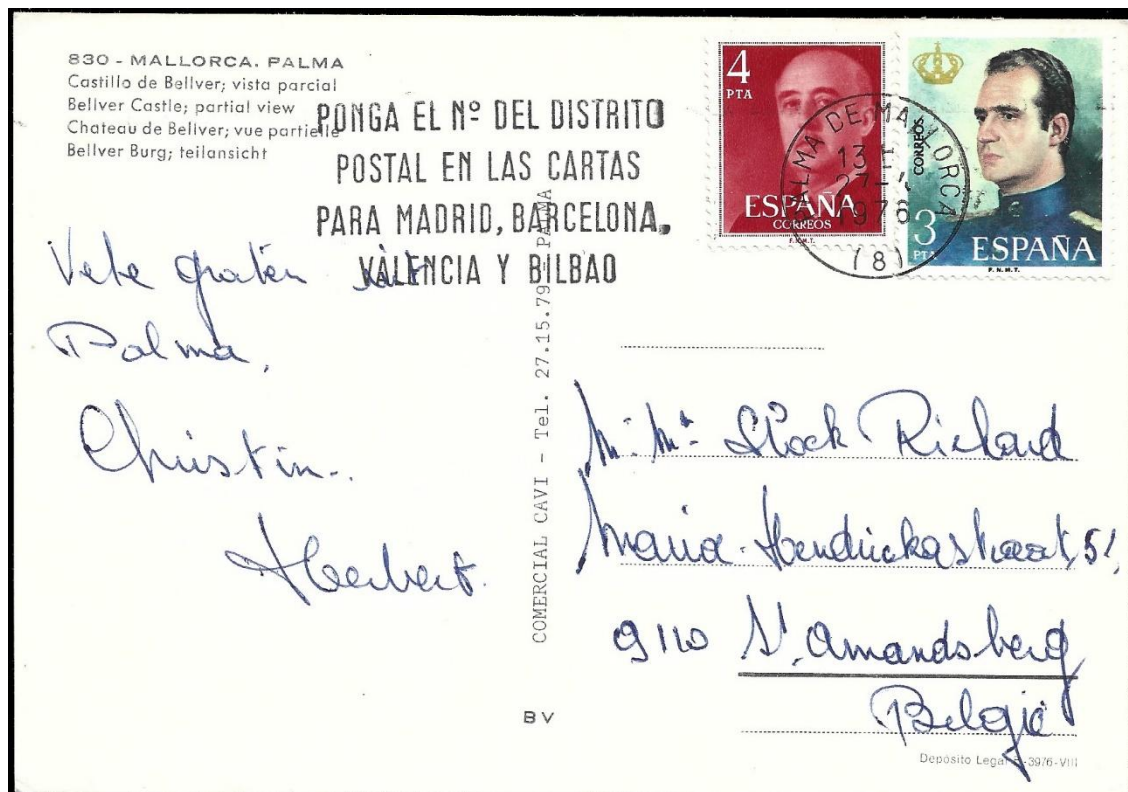 830 - MALLORCA. PALMA
Castillo de Bellver; vista parcial
Bellver Castle; partial view
Chateau de Bellver; vue partielle
Bellver Burg; teilansicht
PONGA EL Nº DEL DISTRITO
POSTAL EN LAS CARTAS
PARA MADRID, BARCELONA,
VALENCIA Y BILBAO
4
PTA
ESPAÑA
CORREOS
F.N.M.T.
CORREOS
3
PTA
ESPAÑA
F.N.M.T.
PALMA DE MALLORCA
1976
(8)
Vele groten
Palma,
Christin.
Herbert.
COMERCIAL CAVI - Tel. 27.15.79 - PALMA
BV
M. Mª Stock Richard
Maria-Hendrickastraat, 51
9110 St. Amandsberg
België
Depósito Legal 3976-VIII